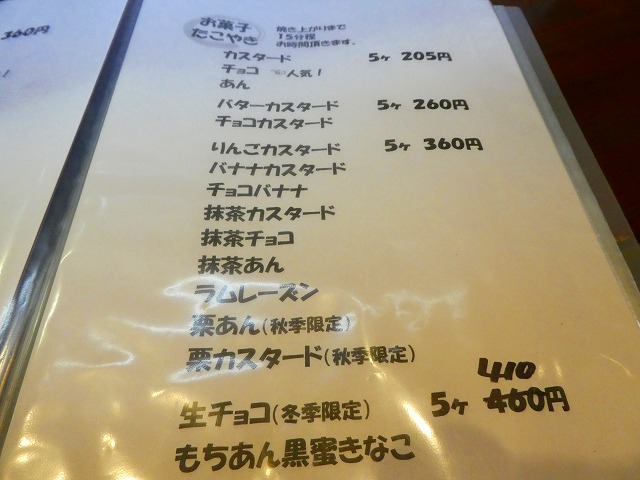 360円
！
お菓子
たこやき
焼き上がりまで
15分程
お時間頂きます。
カスタード 5ヶ 205円
チョコ ☜人気！
あん
バターカスタード 5ヶ 260円
チョコカスタード
りんごカスタード 5ヶ 360円
バナナカスタード
チョコバナナ
抹茶カスタード
抹茶チョコ
抹茶あん
ラムレーズン
栗あん(秋季限定)
栗カスタード(秋季限定)
410
生チョコ(冬季限定) 5ヶ 460円
もちあん黒蜜きなこ